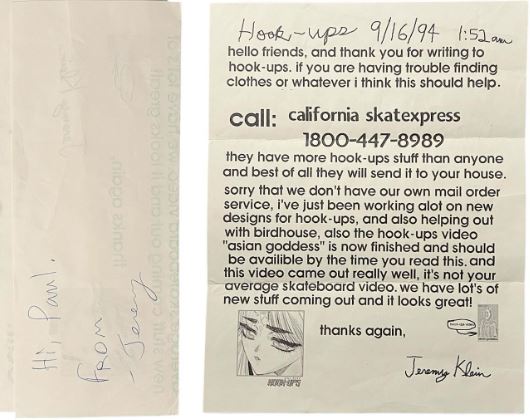 Hi, Paul.
From
- Jeremy
Hook-ups 9/16/94 1:52am
hello friends, and thank you for writing to
hook-ups. if you are having trouble finding
clothes or whatever i think this should help.
call: california skatexpress
1800-447-8989
they have more hook-ups stuff than anyone
and best of all they will send it to your house.
sorry that we don't have our own mail order
service, i've just been working alot on new
designs for hook-ups, and also helping out
with birdhouse, also the hook-ups video
"asian goddess" is now finished and should
be availible by the time you read this. and
this video came out really well, it's not your
average skateboard video. we have lot's of
new stuff coming out and it looks great!
thanks again,
Jeremy Klein
HOOK-UPS